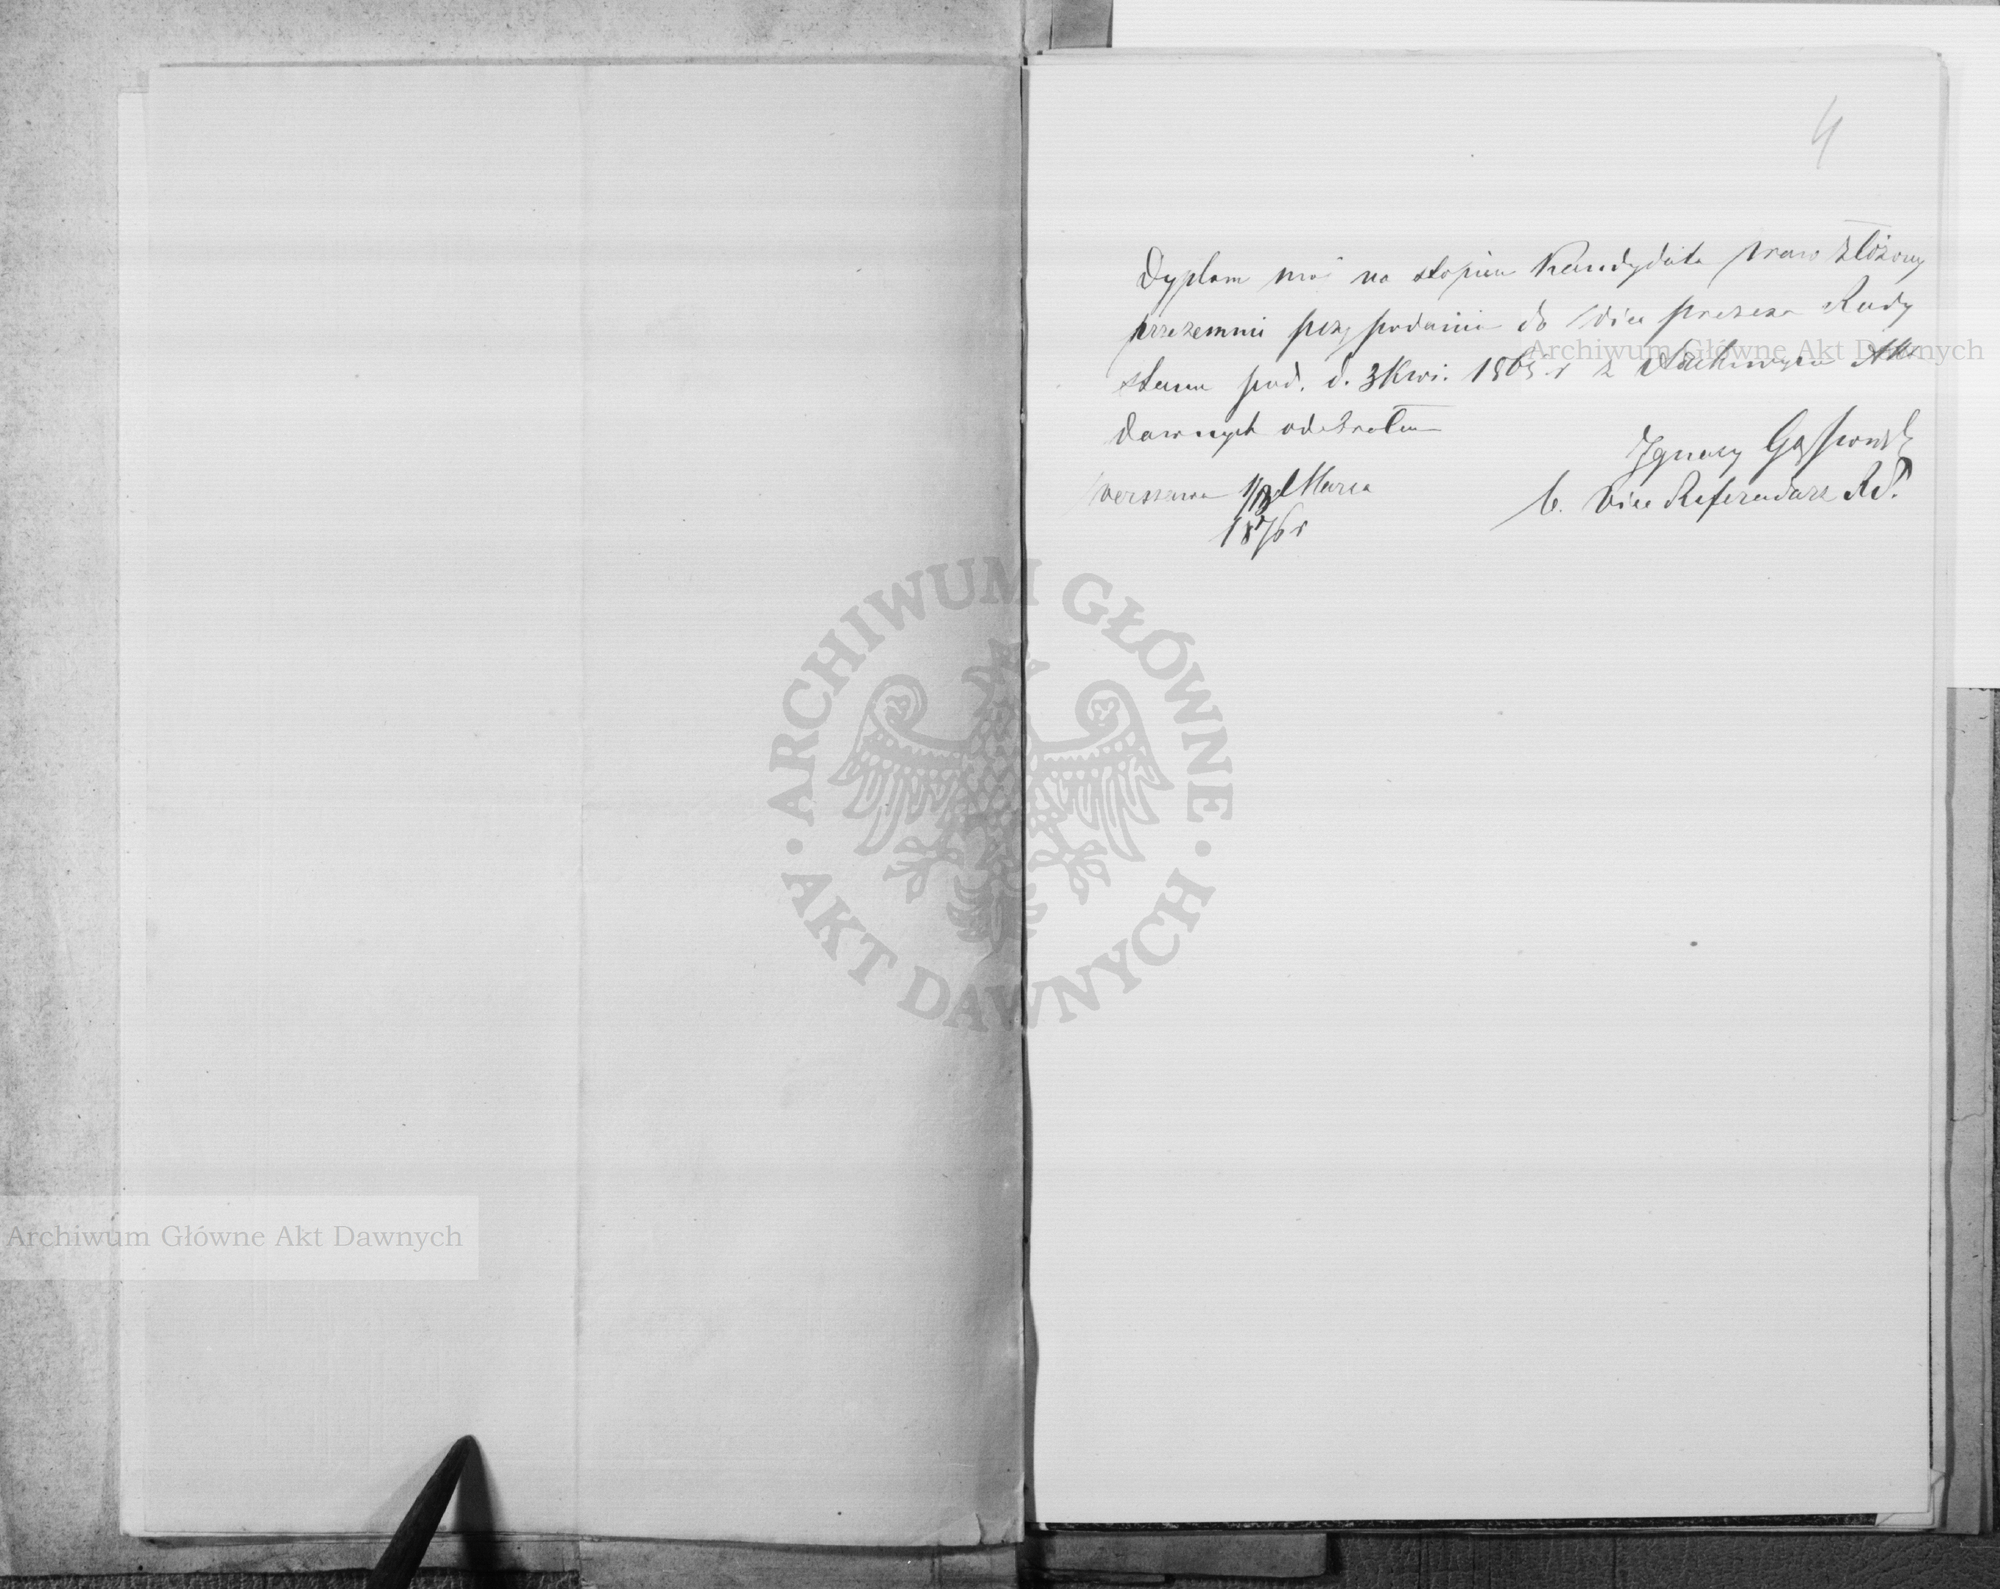 4
Dyplom mój na stopień Kandydata praw złożony
przezemnie przy podaniu do Vice prezesa Rady
Stanu pod. d. 3 Kwi. 1865 r z Archiwum Akt
Dawnych odebrałem
Warszawa 1/13 Marca
1876 r
Ignacy
b. Vice Referendarz R.S.
Archiwum Główne Akt Dawnych
ARCHIWUM GŁÓWNE AKT DAWNYCH
Archiwum Główne Akt Dawnych